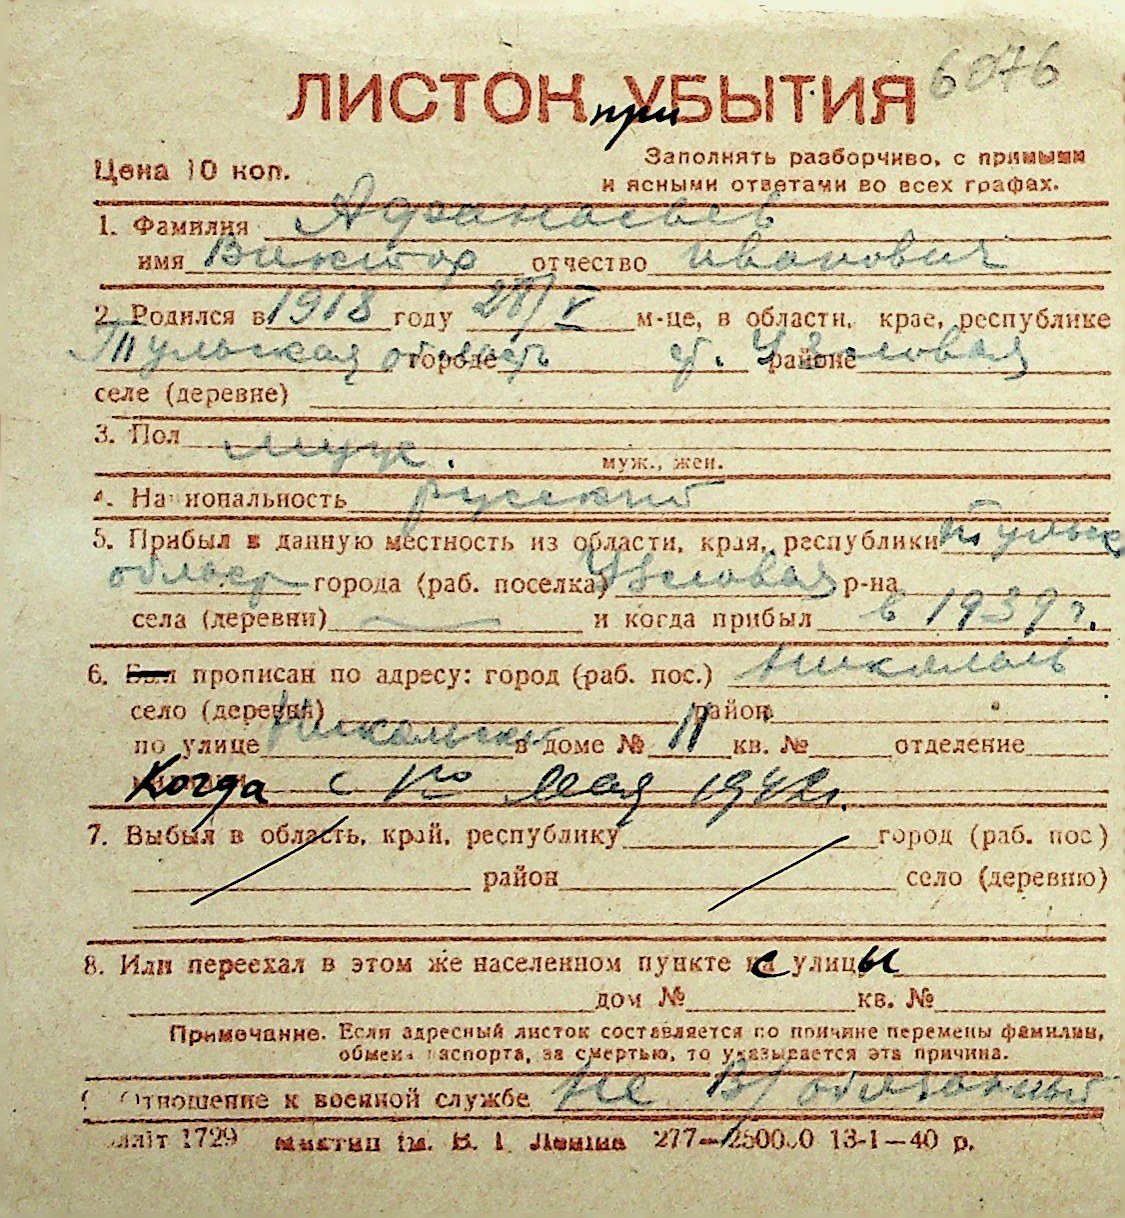 6076
ЛИСТОК при УБЫТИЯ
Цена 10 коп.
Заполнять разборчиво, с прямыми
и ясными ответами во всех графах.
1. Фамилия Афанасьев
имя Виктор отчество Иванович
2. Родился в 1918 году 28/V м-це, в области, крае, республике
Тульская область городе г. Узловая районе
селе (деревне)
3. Пол муж.
муж., жен.
4. Национальность русский
5. Прибыл в данную местность из области, края, республики Тульск
област города (раб. поселка) Узловая р-на
села (деревни) и когда прибыл в 1939 г.
6. Был прописан по адресу: город (раб. пос.) Николаев
село (деревня) район
по улице в доме № 11 кв. № отделение
милиции Когда с 1го Мая 1942г.
7. Выбыл в область, край, республику город (раб. пос)
район село (деревню)
8. Или переехал в этом же населенном пункте с улицы
дом № кв. №
Примечание. Если адресный листок составляется по причине перемены фамилии,
обмена паспорта, за смертью, то указывается эта причина.
Отношение к военной службе не в/обязанный
1729 ім. В. І. Леніна 277—250000 13-1—40 р.